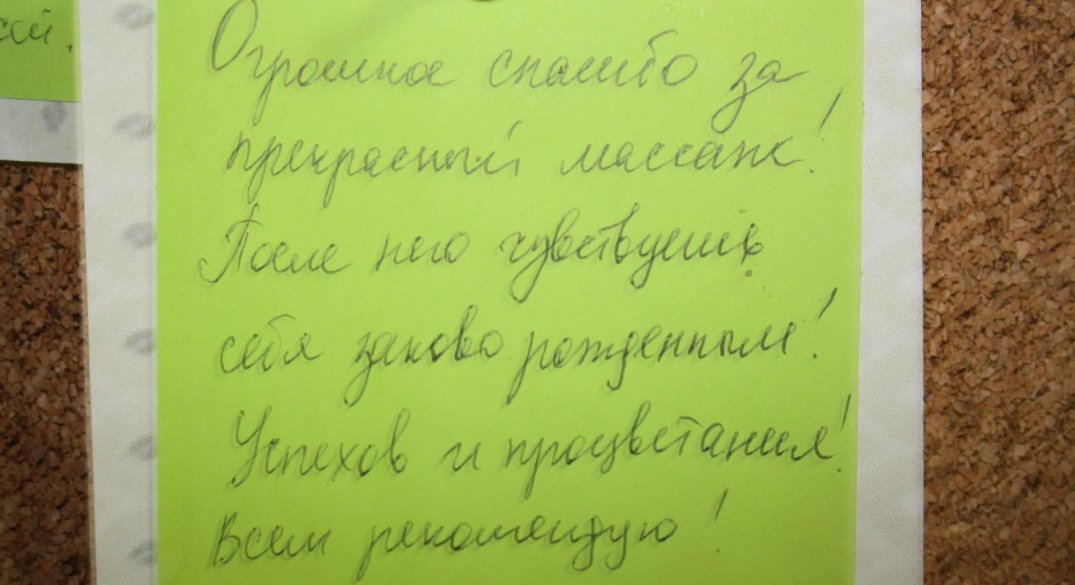 сей.
Огромное спасибо за
прекрасный массаж!
После него чувствуешь
себя заново рожденным!
Успехов и процветания!
Всем рекомендую!